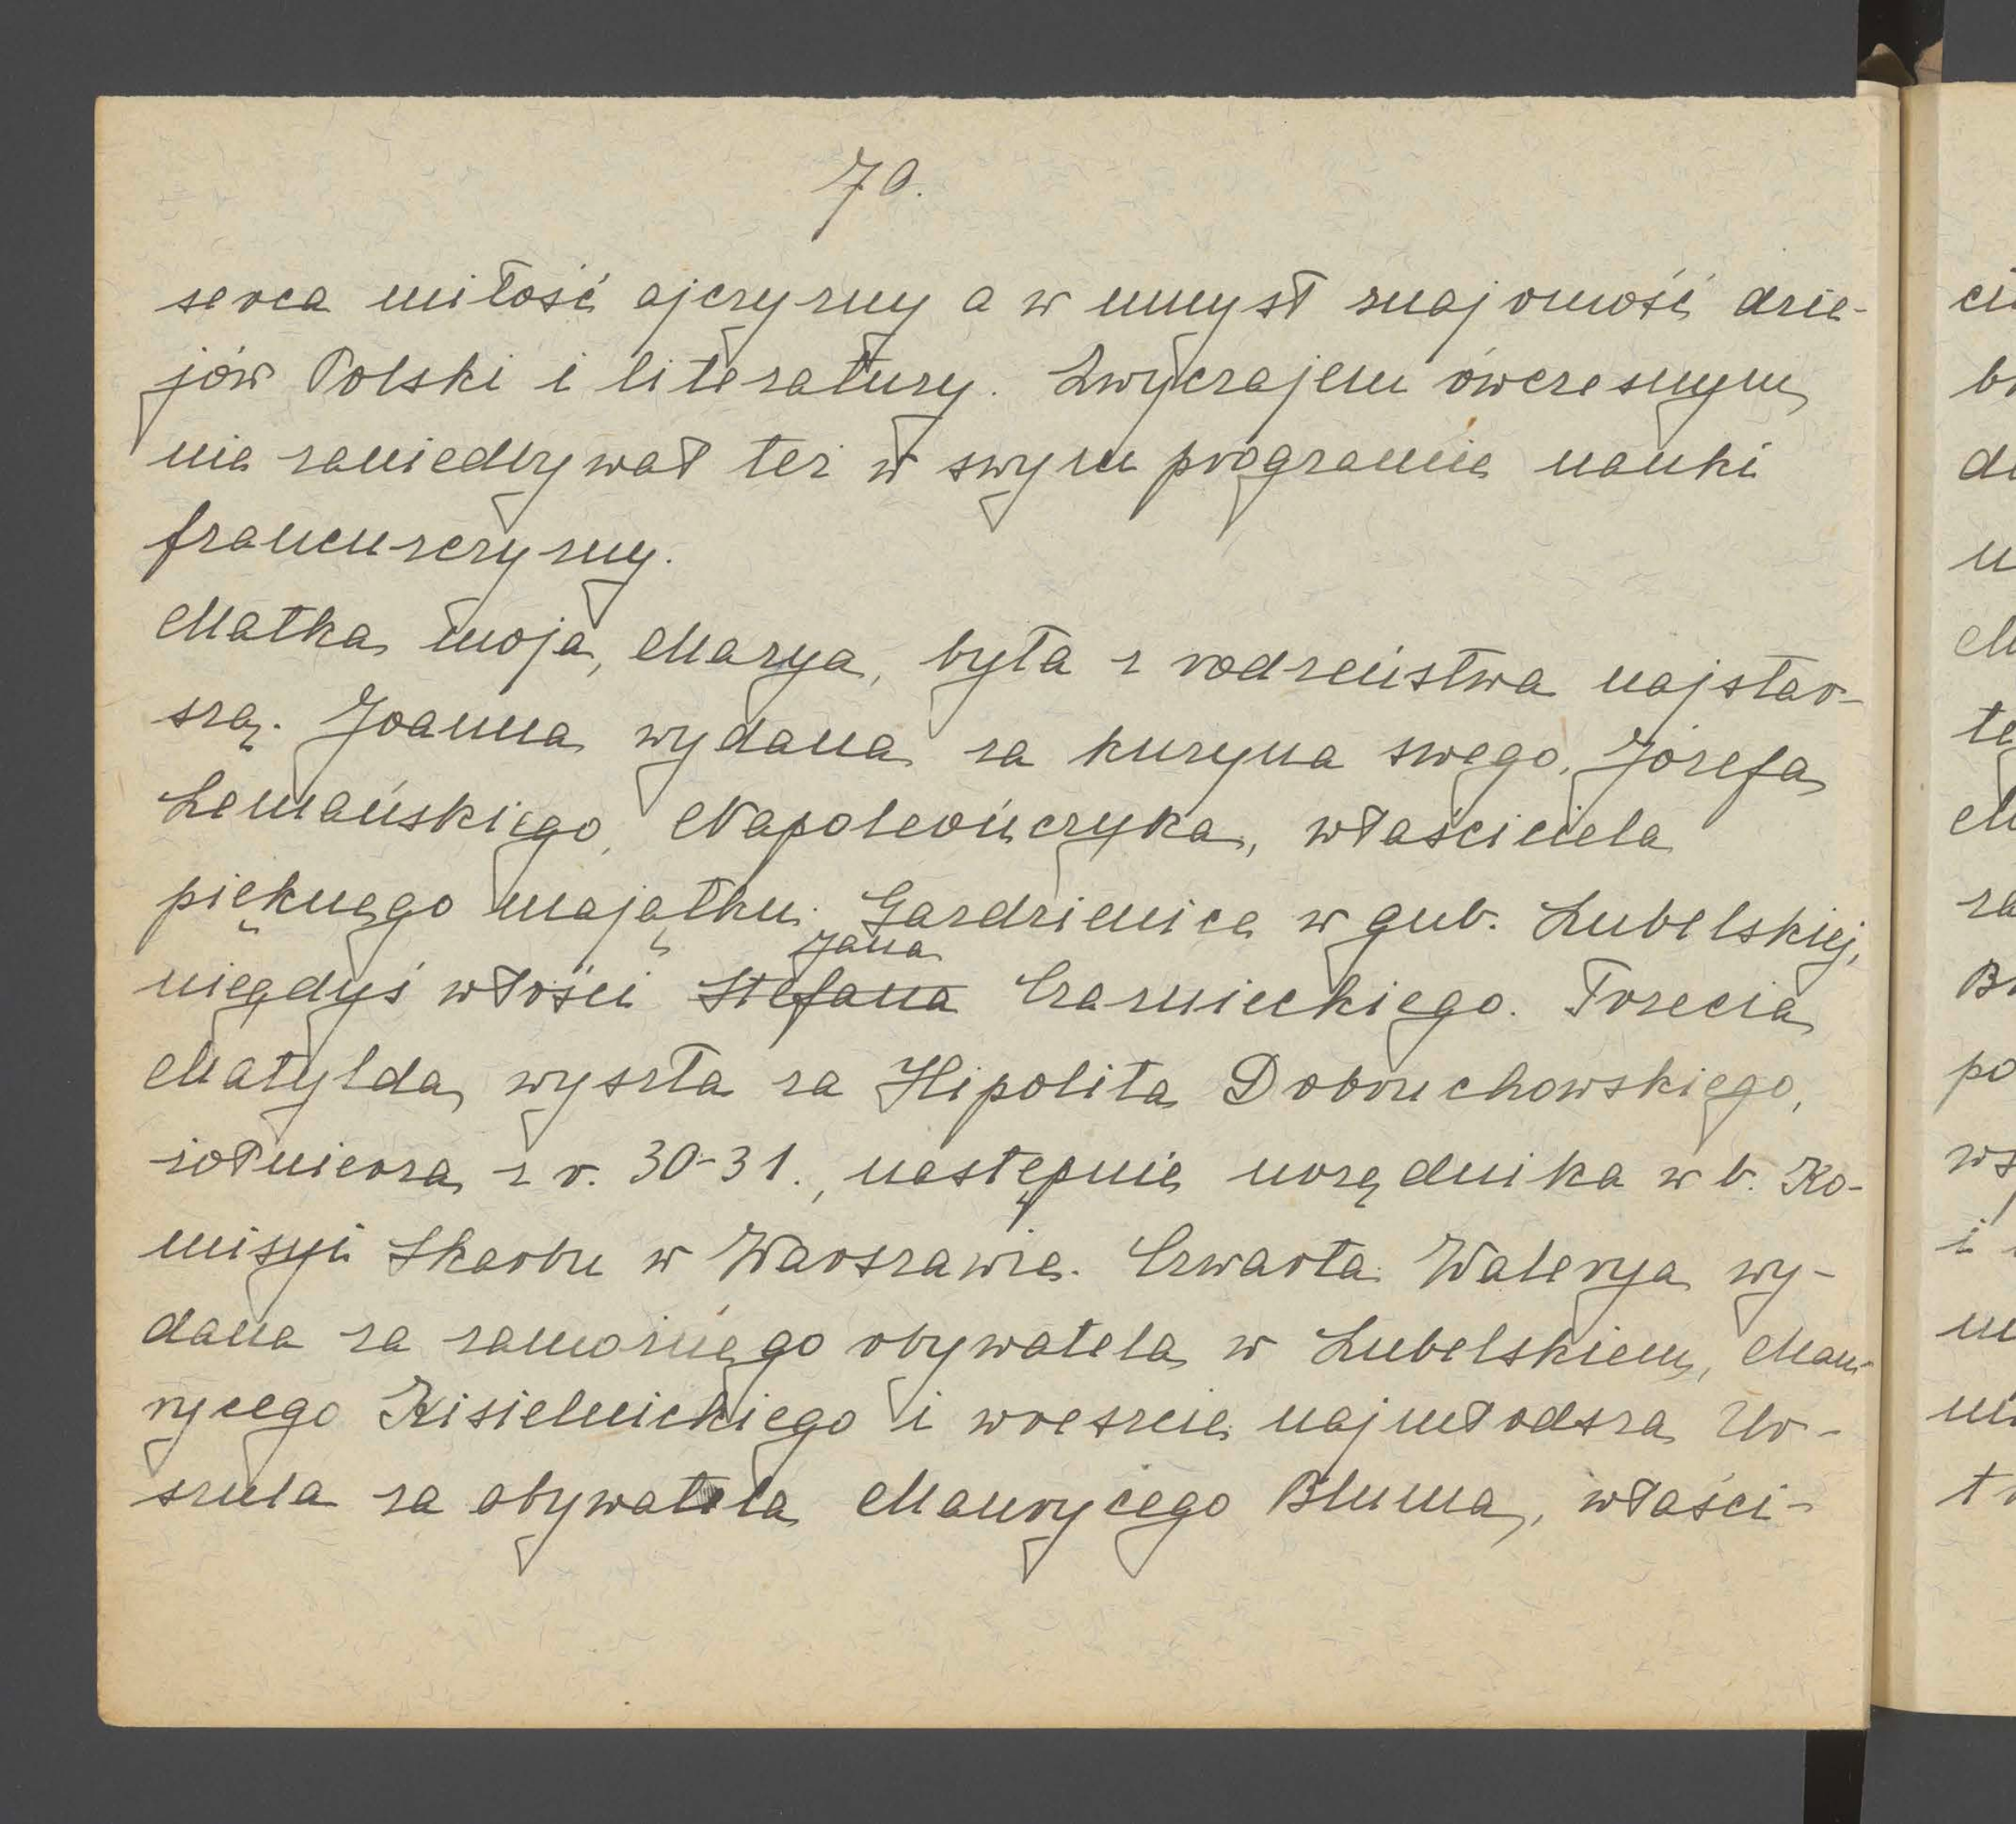 70.
serca miłość ojczyzny a w umysł znajomość dzie-
jów Polski i literatury. Zwyczajem ówczesnym
nie zaniedbywał też w swym programie nauki
francuszczyzny.
Matka moja, Marya, była z rodzeństwa najstar-
szą. Joanna wydana za kuzyna swego, Józefa
Lemańskiego, Napoleończyka, właściciela
pięknego majątku Gardzienice w gub. Lubelskiej,
Jana
niegdyś włości Stefana Czarnieckiego. Trzecia
Matylda wyszła za Hipolita Dobruchowskiego,
żołnierza z r. 30-31., następnie urzędnika w b. Ko-
misyi Skarbu w Warszawie. Czwarta Walerya wy-
dana za zamożnego obywatela w Lubelskiem, Mau-
rycego Kisielnickiego i wreszcie najmłodsza Ur-
szula za obywatela Maurycego Bluma, właści-